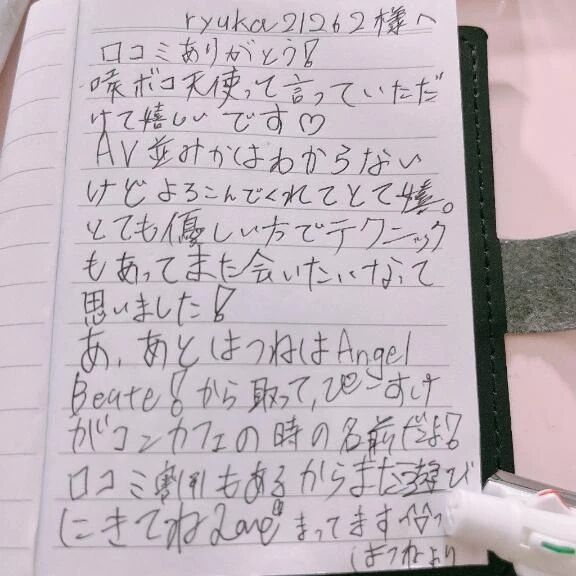 ryuka21262様へ
口コミありがとう!
喉ボコ天使って言っていただ
けて嬉しいです♡
AV並みかはわからない
けどよろこんでくれてとて嬉。
とても優しい方でテクニック
もあってまた会いたいなって
思いました!
あ、あとはつねはAngel
Beate!から取って、ぴ すけ
がコンカフェの時の名前だよ?
口コミ割引もあるからまた遊び
にきてねLove まってます
はつねより